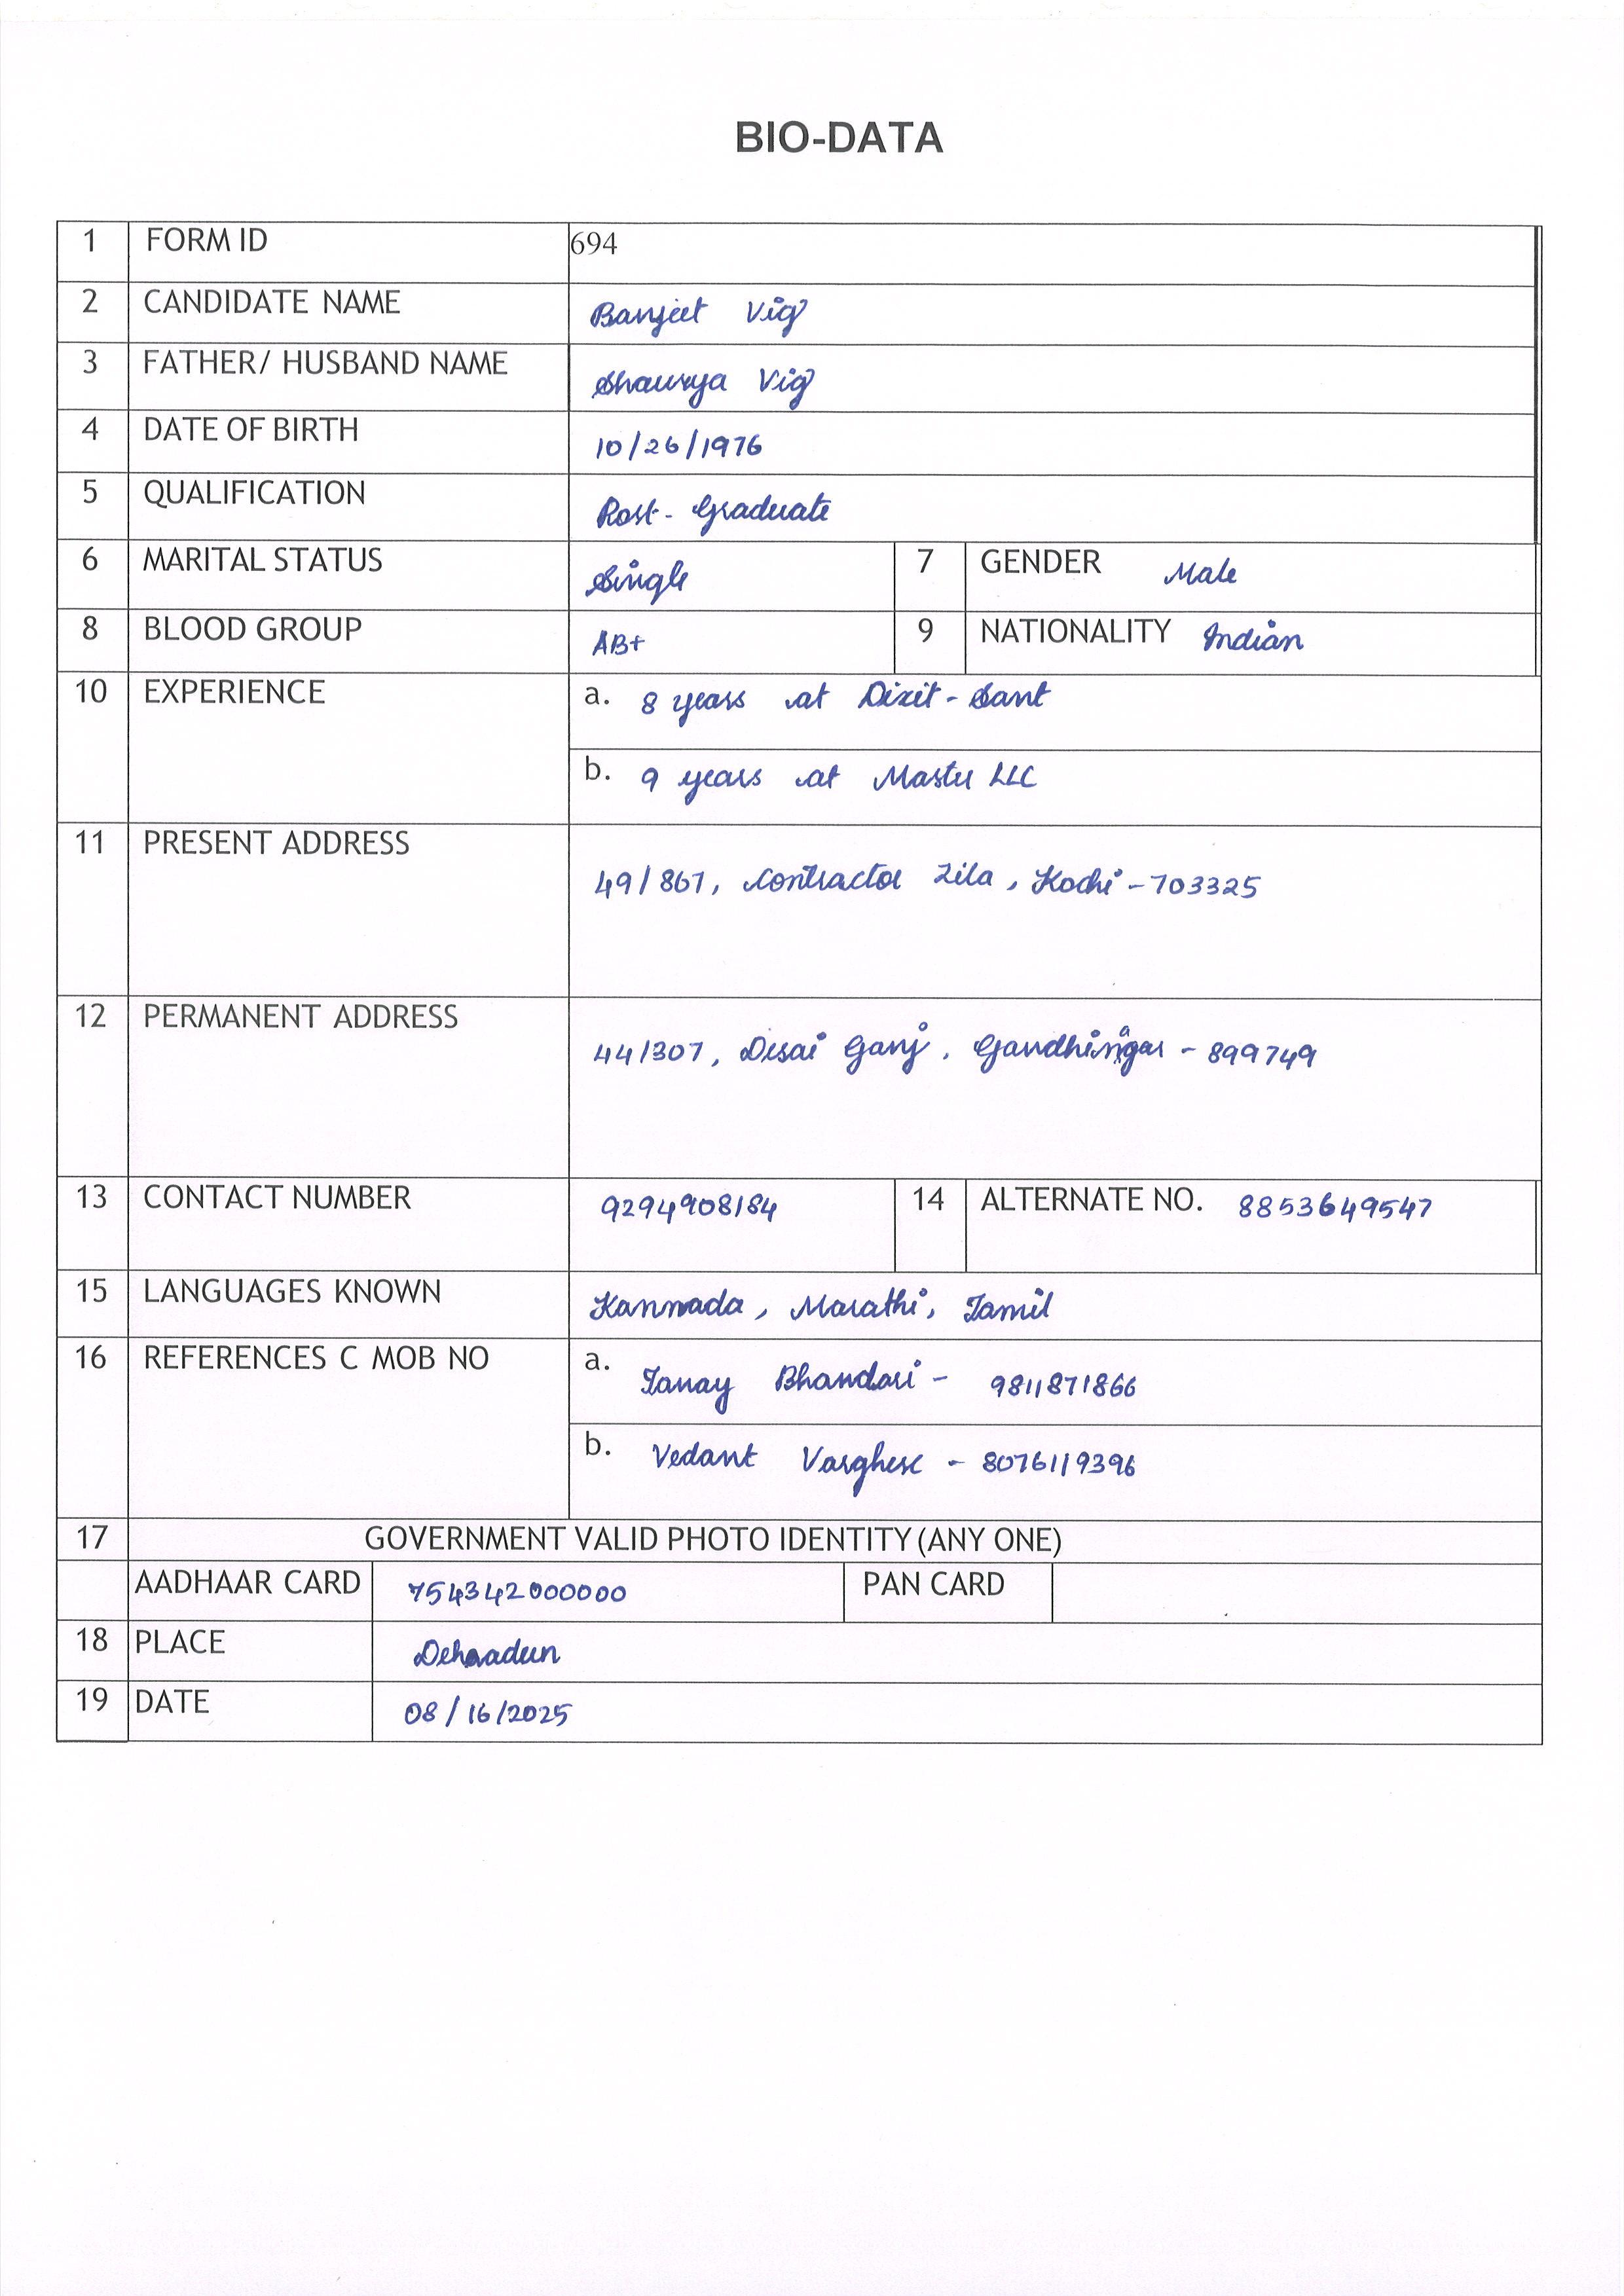 BIO-DATA
1 FORM ID 694
2 CANDIDATE NAME Banjeet Vig
3 FATHER/ HUSBAND NAME Shaurya Vig
4 DATE OF BIRTH 10/26/1976
5 QUALIFICATION Post-Graduate
6 MARITAL STATUS Single 7 GENDER Male
8 BLOOD GROUP AB+ 9 NATIONALITY Indian
10 EXPERIENCE a. 8 years at Dixit-Sant
b. 9 years at Master LLC
11 PRESENT ADDRESS
49/867, Contractor Zila, Kochi-703325
12 PERMANENT ADDRESS
44/307, Desai Ganj, Gandhingar - 899749
13 CONTACT NUMBER 9294908184 14 ALTERNATE NO. 8853649547
15 LANGUAGES KNOWN Kannada, Marathi, Tamil
16 REFERENCES C MOB NO a. Tanay Bhandari - 9811871866
b. Vedant Varghese - 8076119396
17 GOVERNMENT VALID PHOTO IDENTITY (ANY ONE)
AADHAAR CARD 754342000000 PAN CARD
18 PLACE Dehradun
19 DATE 08/16/2025